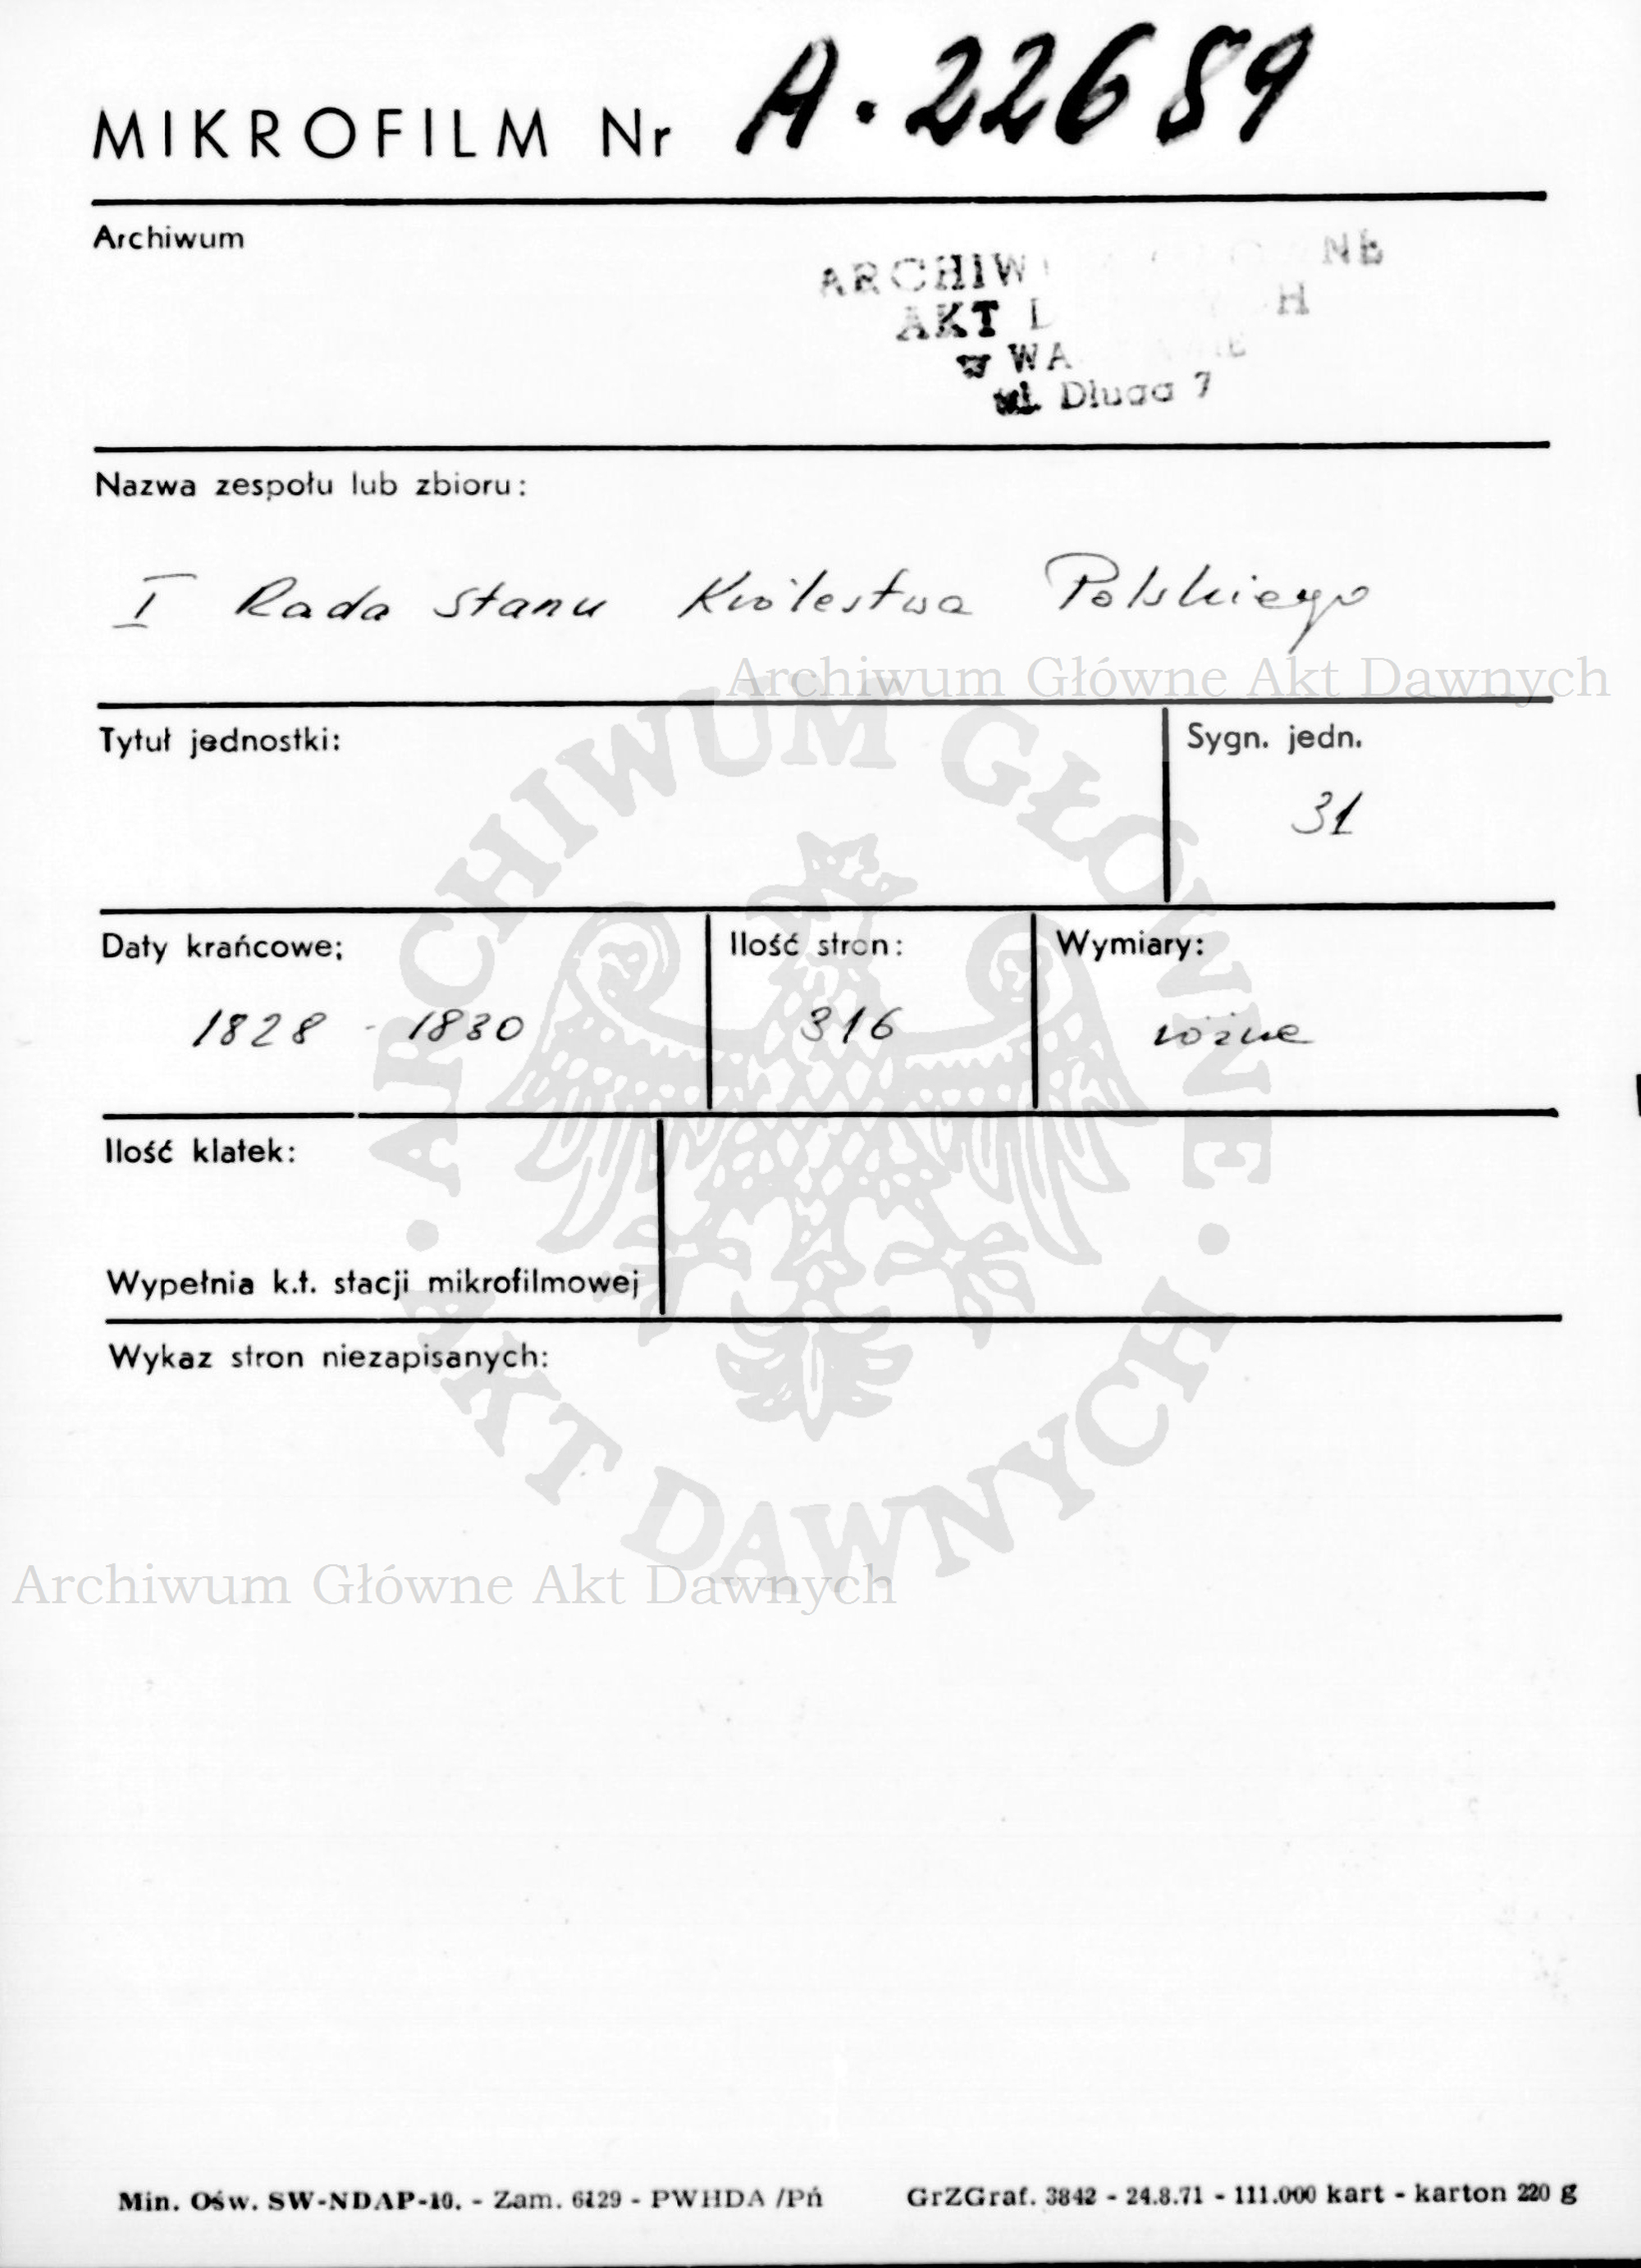 MIKROFILM Nr A.22689
Archiwum
AKT
ul. Długa 7
Nazwa zespołu lub zbioru:
I Rada Stanu Królestwa Polskiego
Archiwum Główne Akt Dawnych
Tytuł jednostki:
Sygn. jedn.
31
ARCHIWUM GŁÓWNE · AKT DAWNYCH ·
Daty krańcowe:
Ilość stron:
Wymiary:
1828 - 1830
316
różne
Ilość klatek:
Wypełnia k.t. stacji mikrofilmowej
Wykaz stron niezapisanych:
Archiwum Główne Akt Dawnych
Min. Ośw. SW-NDAP-10. - Zam. 6129 - PWHDA /Pń
GrZGraf. 3842 - 24.8.71 - 111.000 kart - karton 220 g